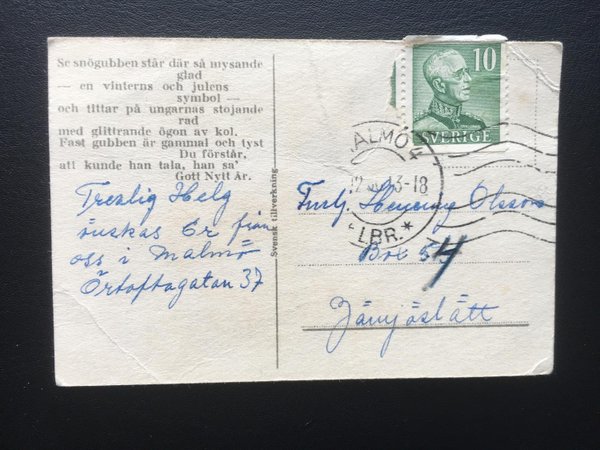 Se snögubben står där så mysande
glad
— en vinterns och julens
symbol —
och tittar på ungarnas stojande
rad
med glittrande ögon av kol.
Fast gubben är gammal och tyst
Du förstår,
att kunde han tala, han sa'
Gott Nytt År.
Trevlig Helg
önskas Er från
oss i Malmö
Örtoftagatan 37
Svensk tillverkning
10
SVERIGE
MALMÖ
3-18
LBR.
Furj. Henning Olsson
Box 54
Jämjöslätt